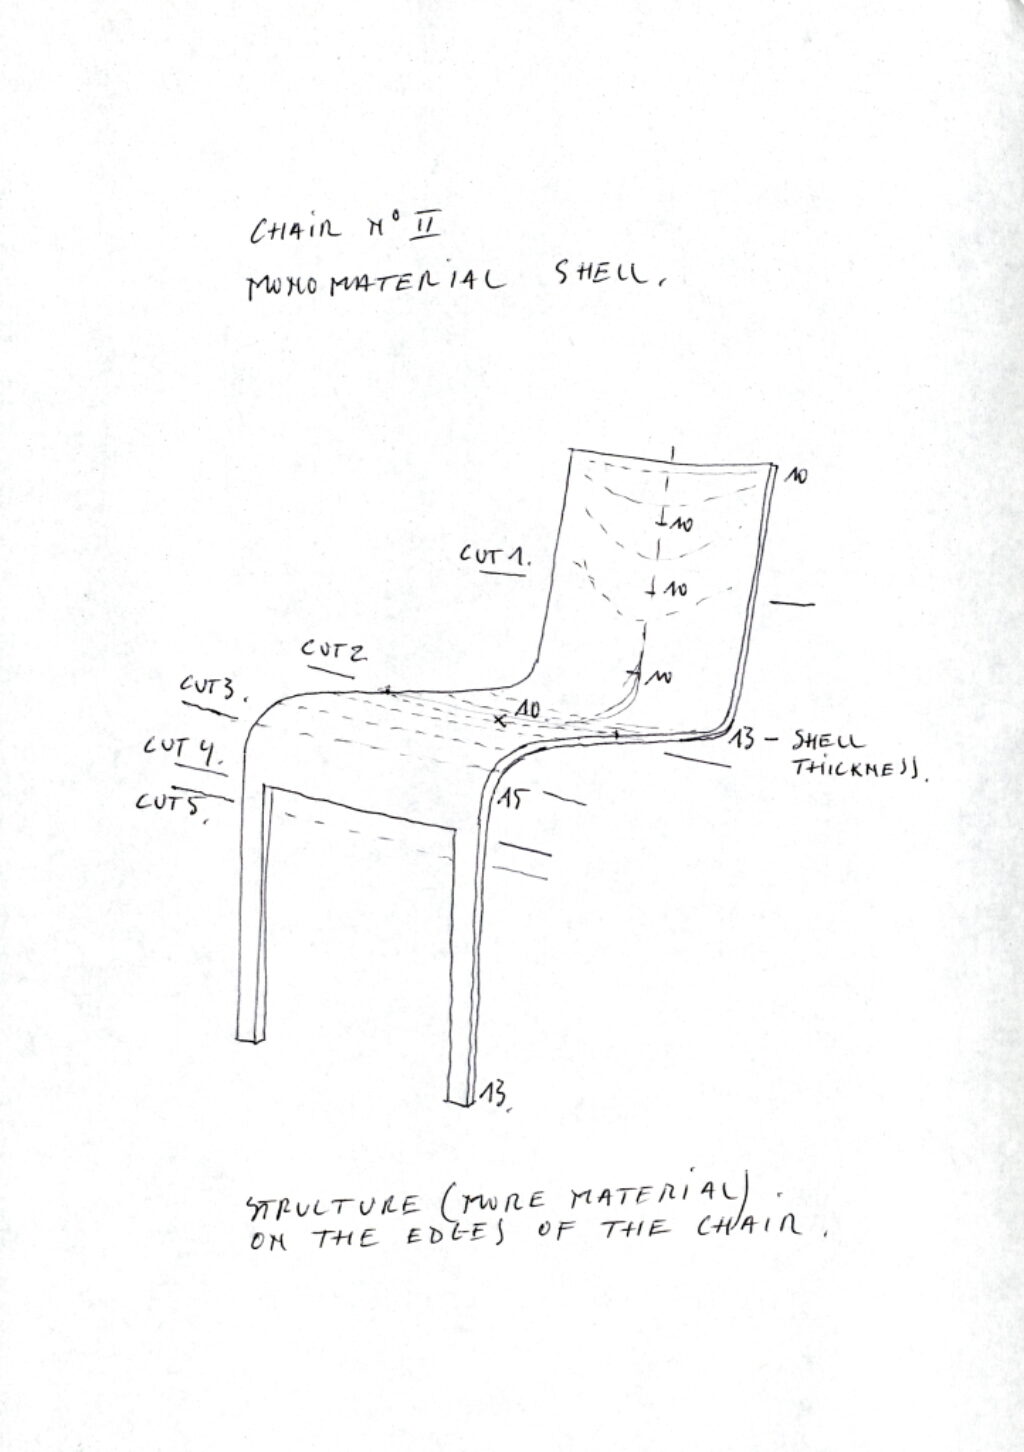 CHAIR N° II
MONOMATERIAL SHELL.
10
10
CUT 1.
10
CUT 2
10
CUT 3.
10
13 - SHELL
THICKNESS.
CUT 4.
CUT 5.
15
13.
STRUCTURE (MORE MATERIAL).
ON THE EDGES OF THE CHAIR.